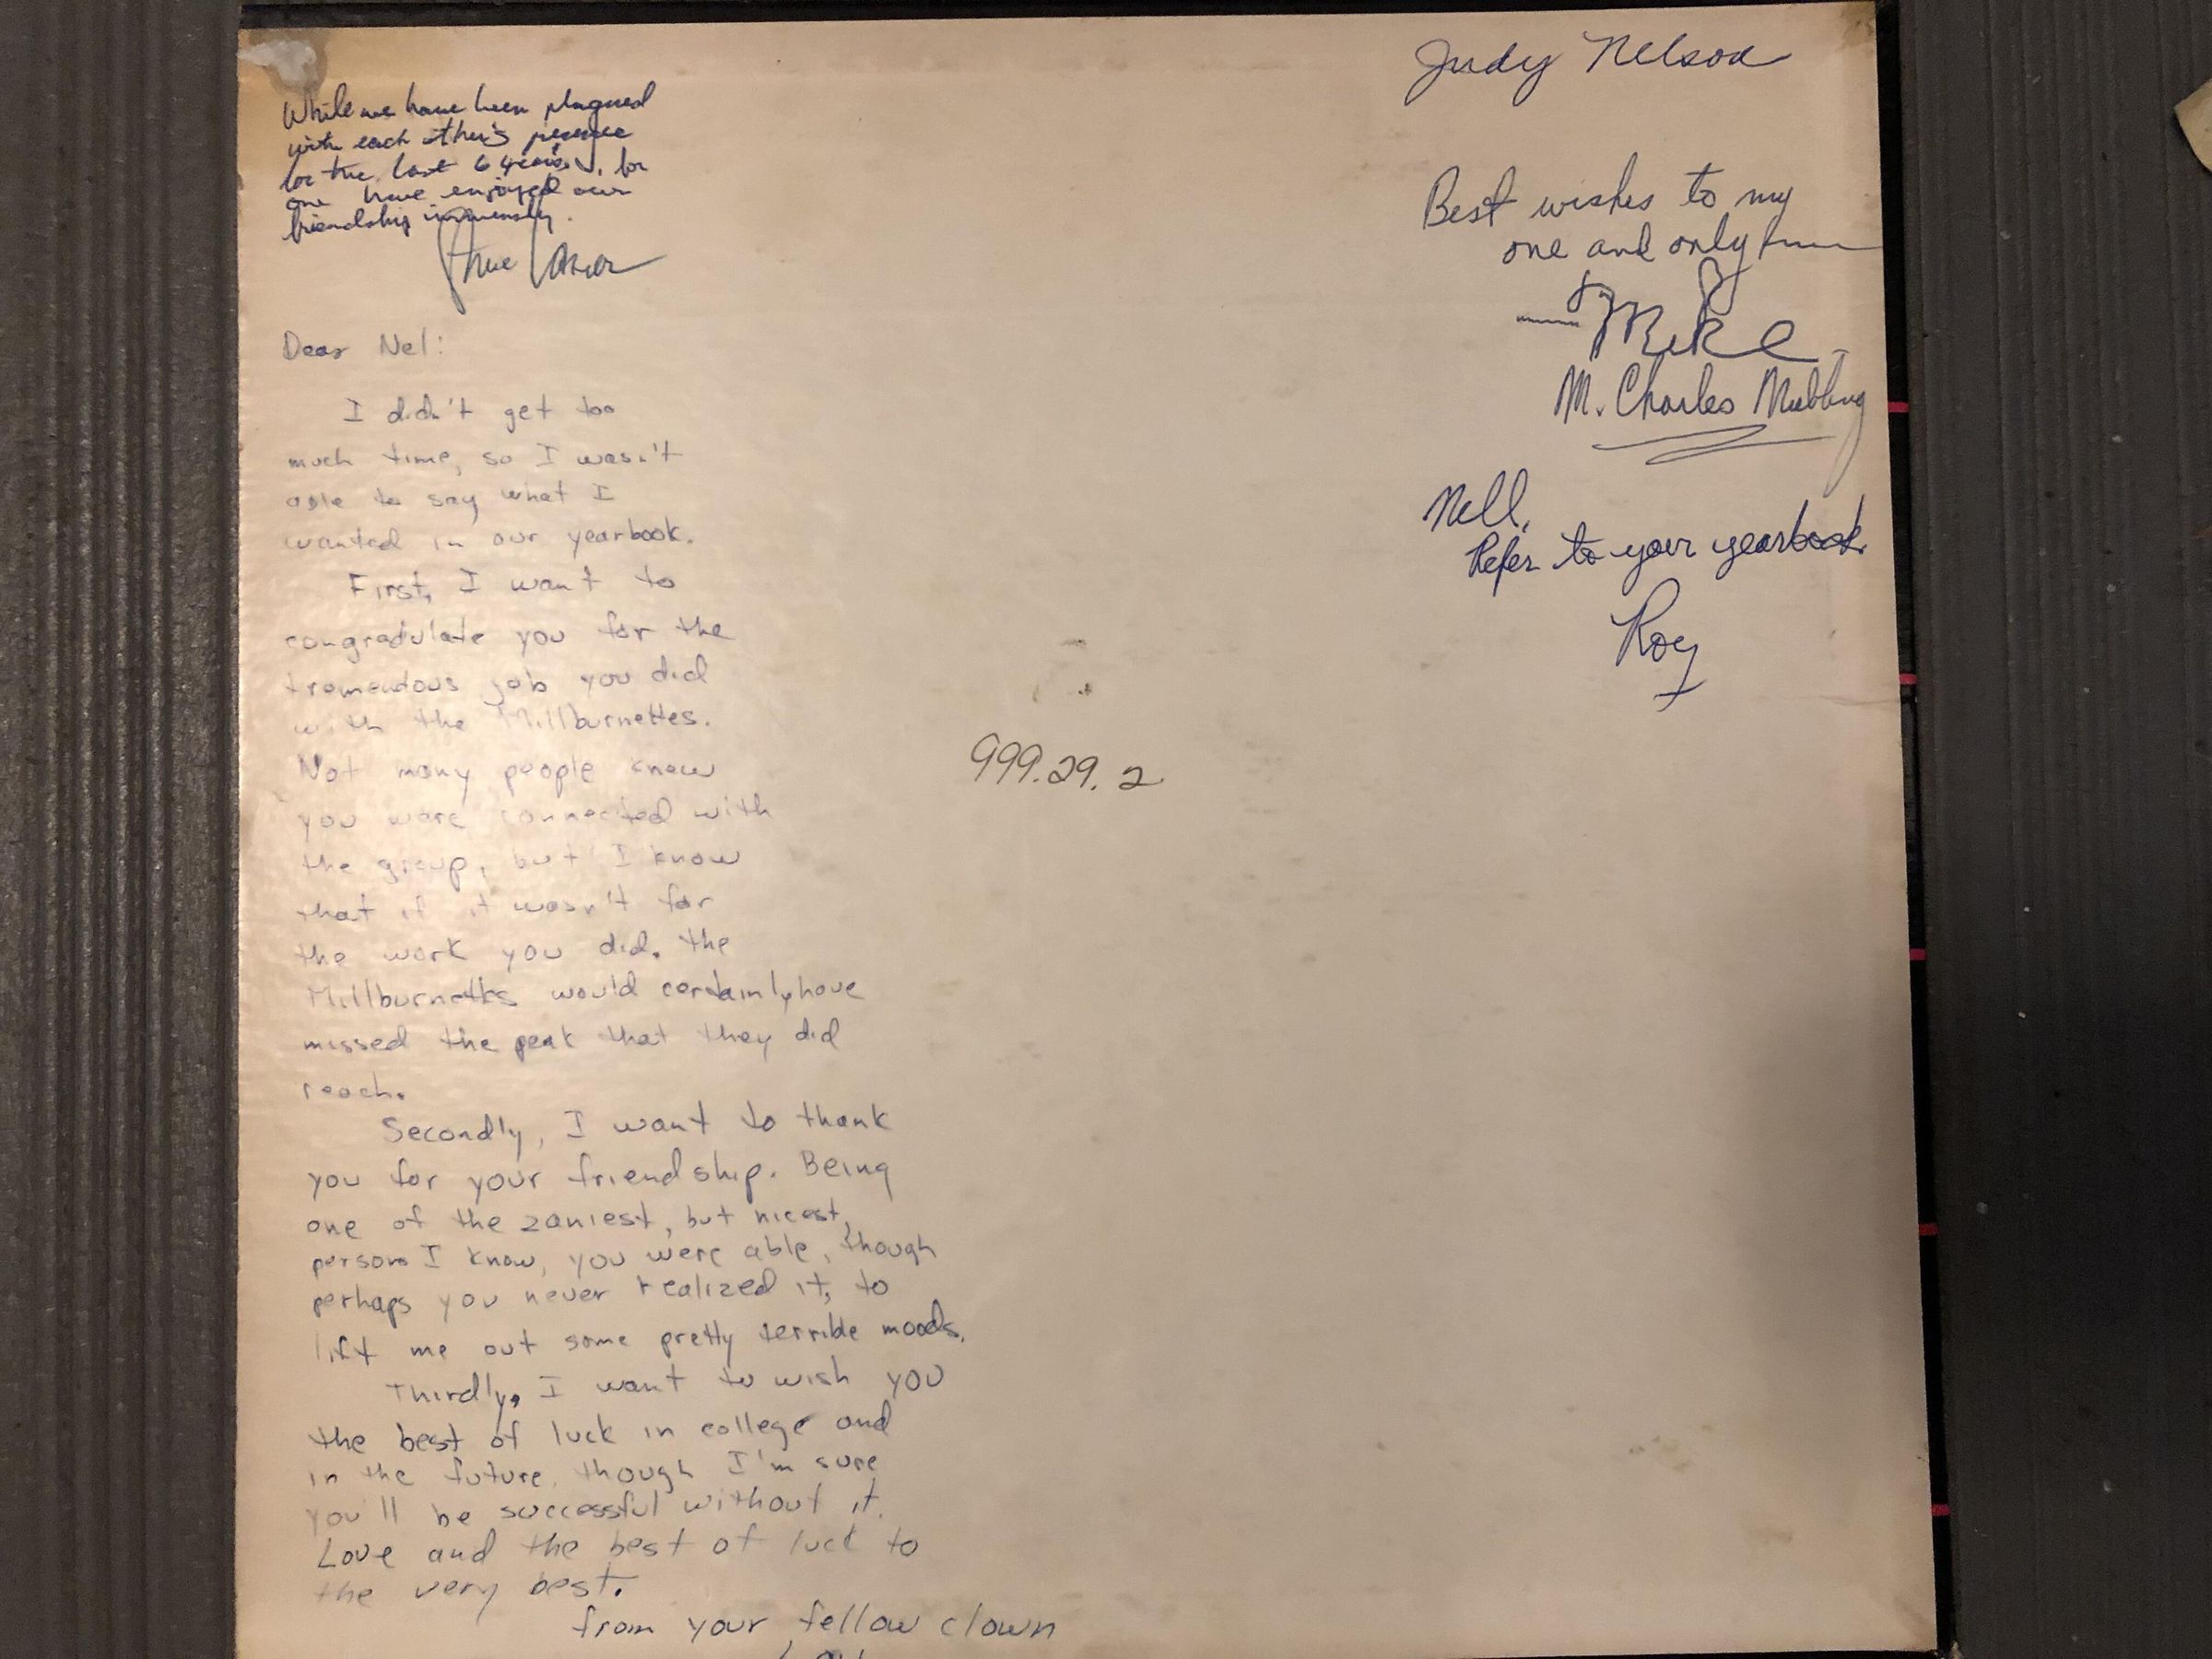 While we have been plagued
with each other's presence
for the last 6 years, I, for
one have enjoyed our
friendship immensely.
Dear Nel:
I didn't get too
much time, so I wasn't
able to say what I
wanted in our yearbook.
First, I want to
congradulate you for the
tremendous job you did
with the Millburnettes.
Not many people knew
you were connected with
the group, but I know
that if it wasn't for
the work you did. the
Millburnettes would certainly have
missed the peak that they did
reach.
Secondly, I want to thank
you for your friendship. Being
one of the zaniest, but nicest,
persons I know, you were able, though
perhaps you never realized it, to
lift me out some pretty terrible moods.
Thirdly, I want to wish you
the best of luck in college and
in the future, though I'm sure
you'll be successful without it.
Love and the best of luck to
the very best.
from your fellow clown
999.29.2
Judy Nelson
Best wishes to my
one and only
Mike
M. Charles
Nell,
Refer to your yearbook.
Roy